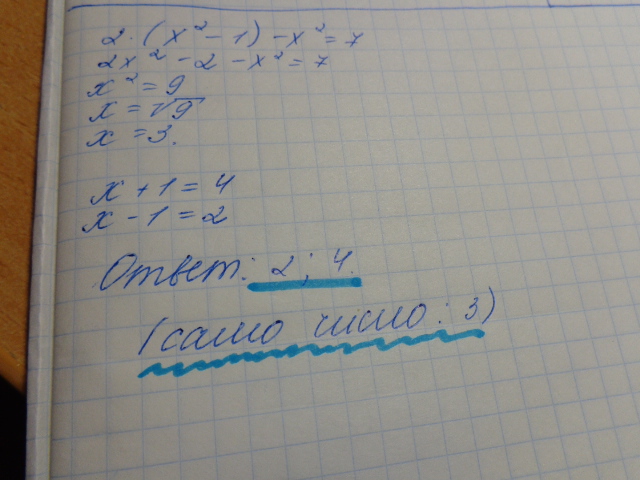 2·(x²-1)-x²=7
2x²-2-x²=7
x²=9
x=√9
x=3.
x+1=4
x-1=2
Ответ: 2; 4.
(само число: 3)